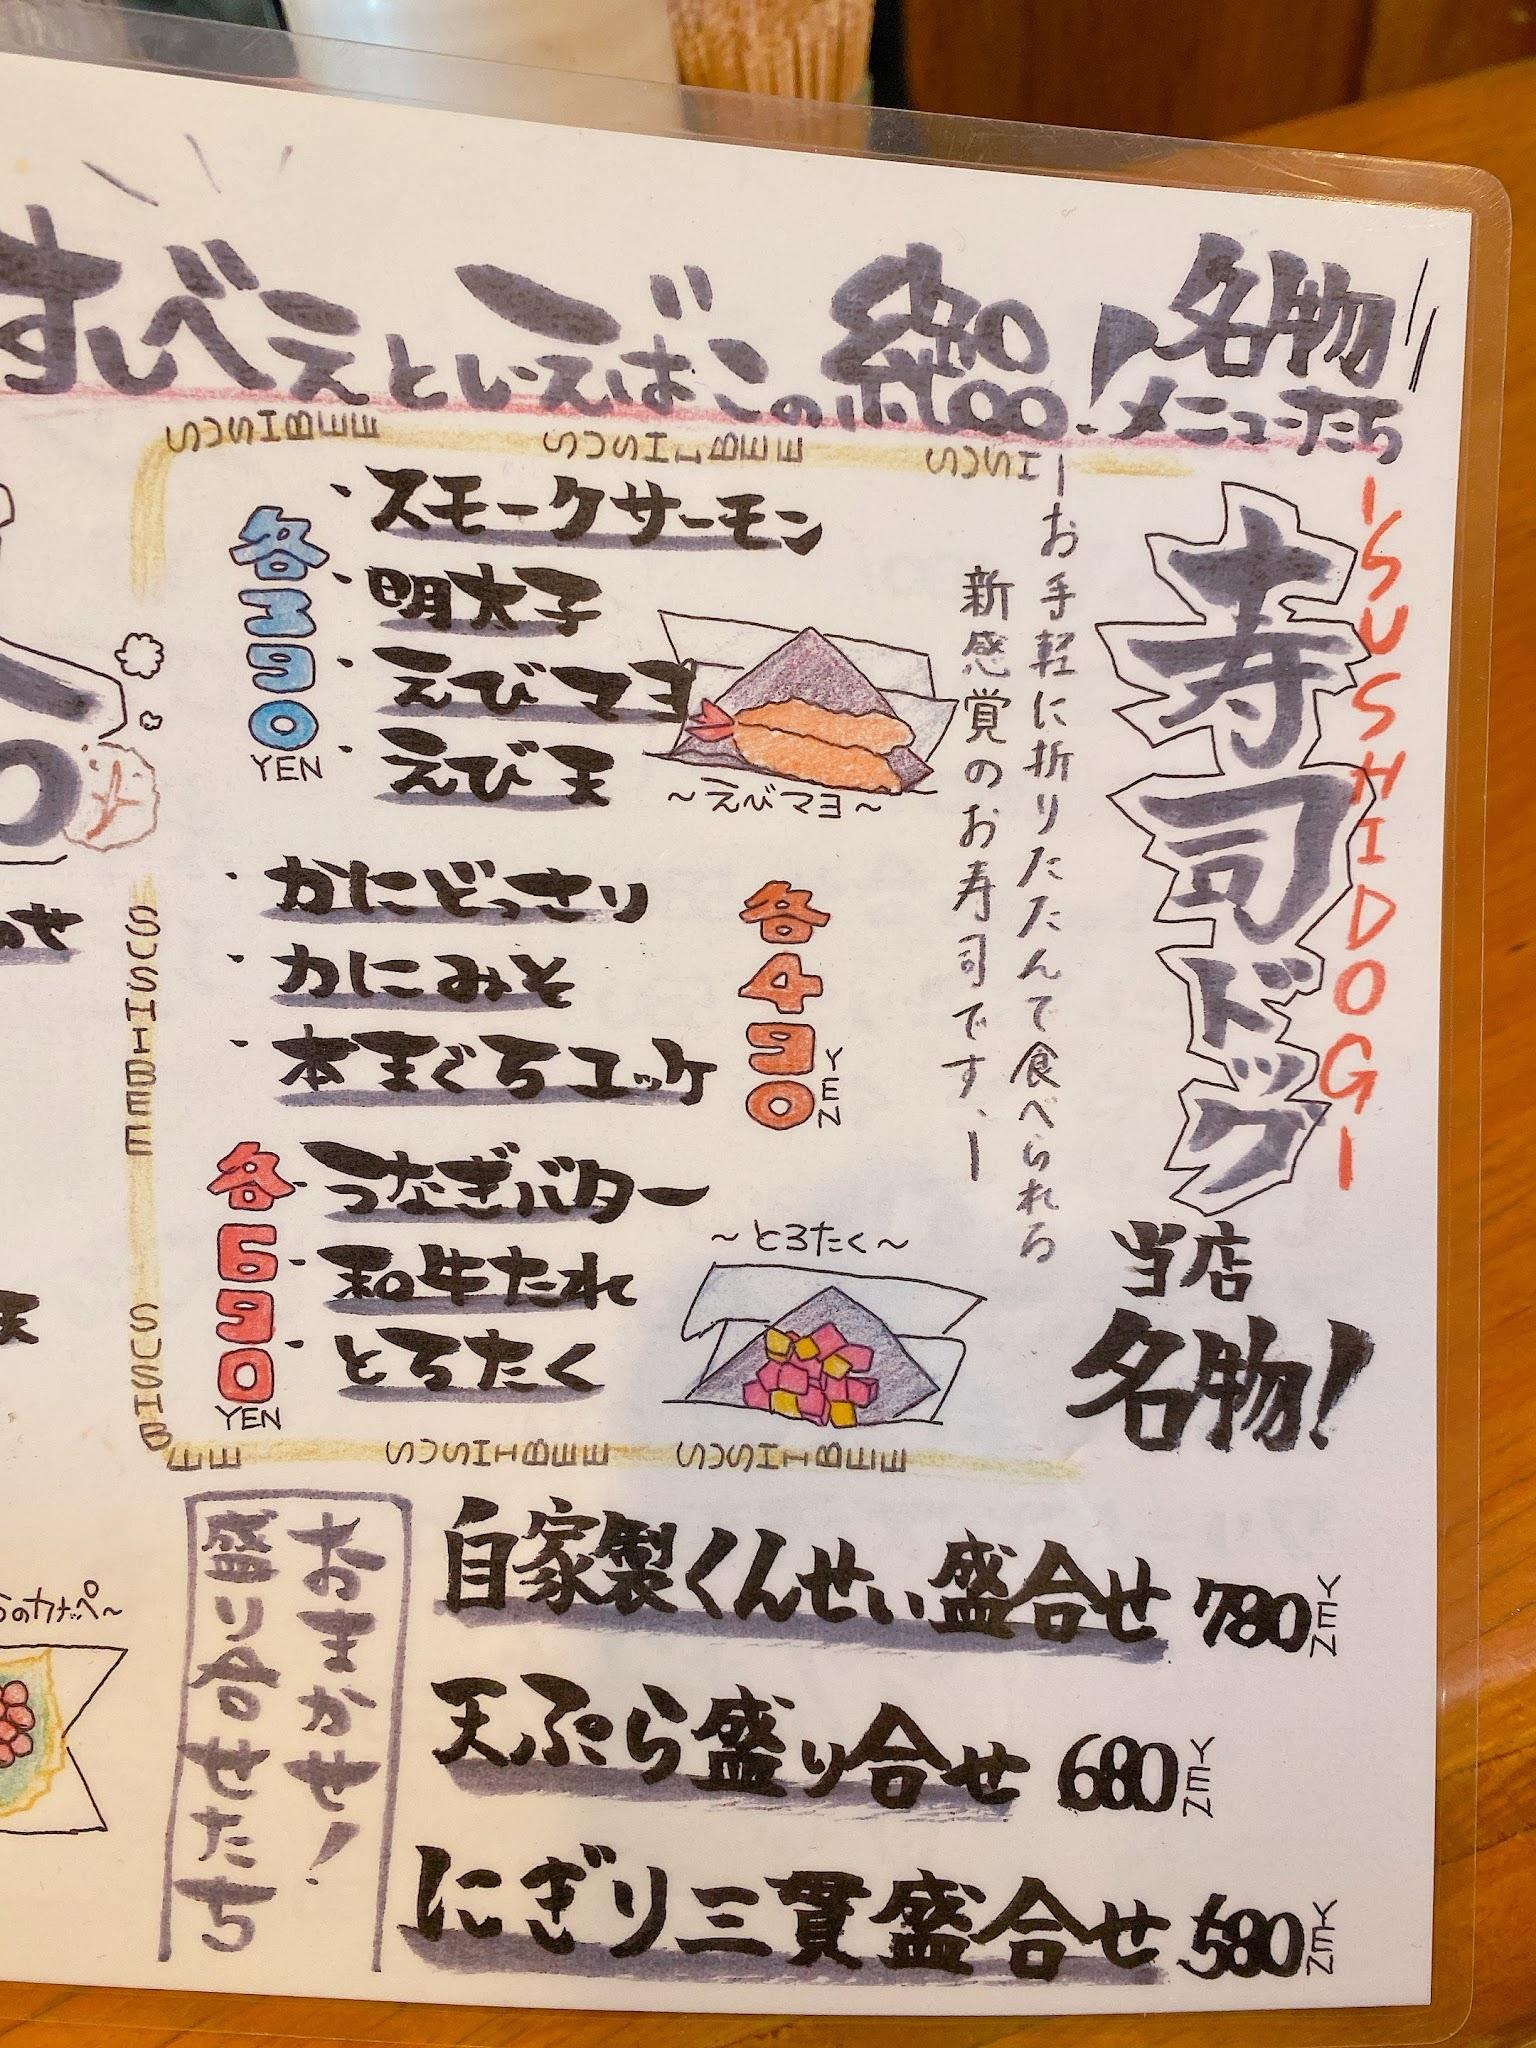 すしべえといえばこの絶品!名物メニューたち
SUSHIBEE
SUSHIBEE
SUSHI
-SUSHIDOG-
寿司ドッグ
当店
名物!
ーお手軽に折りたたんで食べられる
新感覚のお寿司です。ー
・スモークサーモン
・明太子
・えびマヨ
・えび天
各390
YEN
~えびマヨ~
・かにどっさり
・かにみそ
・本まぐろユッケ
各490
YEN
・うなぎバター
・和牛たれ
・とろたく
各690
YEN
~とろたく~
SUSHIBEE
SUSHIBEE
SUSHIBEE
SUSHIBEE
おまかせ!
盛り合せたち
自家製くんせい盛合せ 780YEN
天ぷら盛り合せ 680YEN
にぎり三貫盛合せ 580YEN